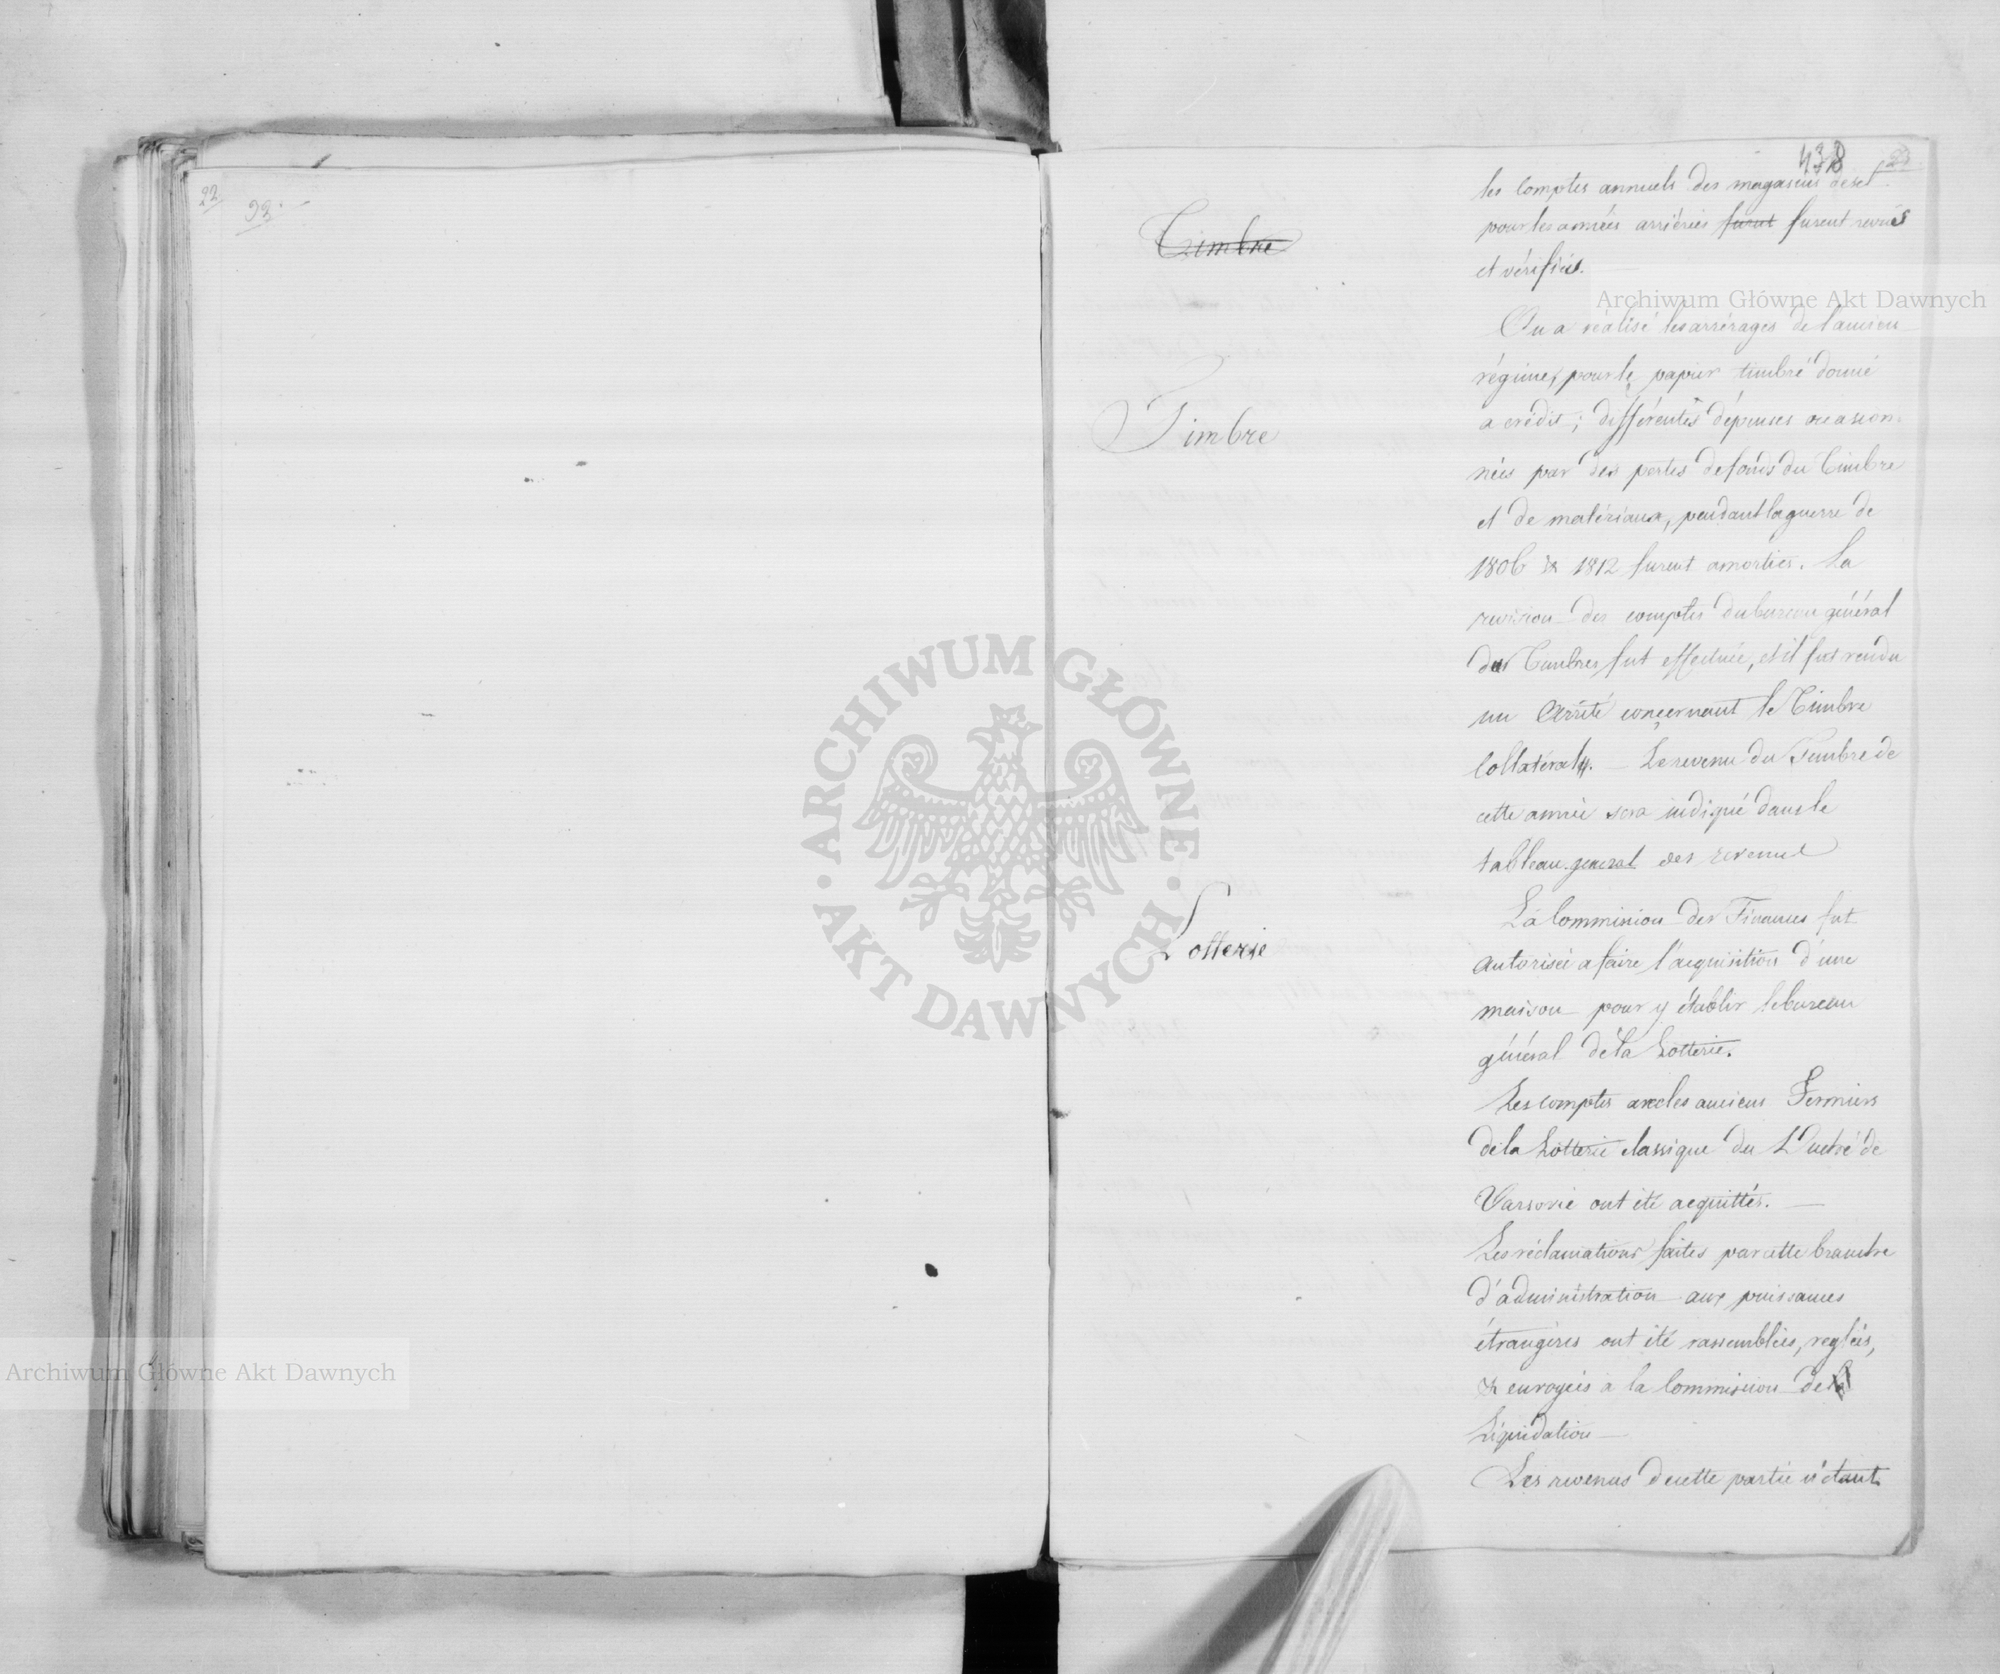 22
92
438
23
les comptes annuels des magasins de sel
pour les années arriérées furent furent revus
et vérifiés.
Timbre
On a réalisé les arrérages de l'ancien
régime, pour le papier timbré donné
a crédit; différentes dépenses occasion-
nées par des pertes de fonds du Timbre
et de matériaux, pendant la guerre de
1806 & 1812 furent amorties. La
revision des comptes du bureau général
des Timbres fut effectuée, et il fut rendu
un Arrêté concernant le Timbre
Collatéral. — Le revenu du Timbre de
cette année sera indiqué dans le
tableau general des revenus
Timbre
La Commission des Finances fut
autorisée a faire l'acquisition d'une
maison pour y établir le bureau
général de la Lotterie.
Lotterie
Les comptes avec les anciens Fermiers
de la Lotterie classique du Duché de
Varsovie ont été acquittés. —
Les réclamations faites par cette branche
d'administration aux puissances
étrangères ont été rassemblées, reglées,
& envoyées à la Commission de
Liquidation —
Les revenus de cette partie n'étant
Archiwum Główne Akt Dawnych
Archiwum Główne Akt Dawnych
ARCHIWUM GŁÓWNE · AKT DAWNYCH ·